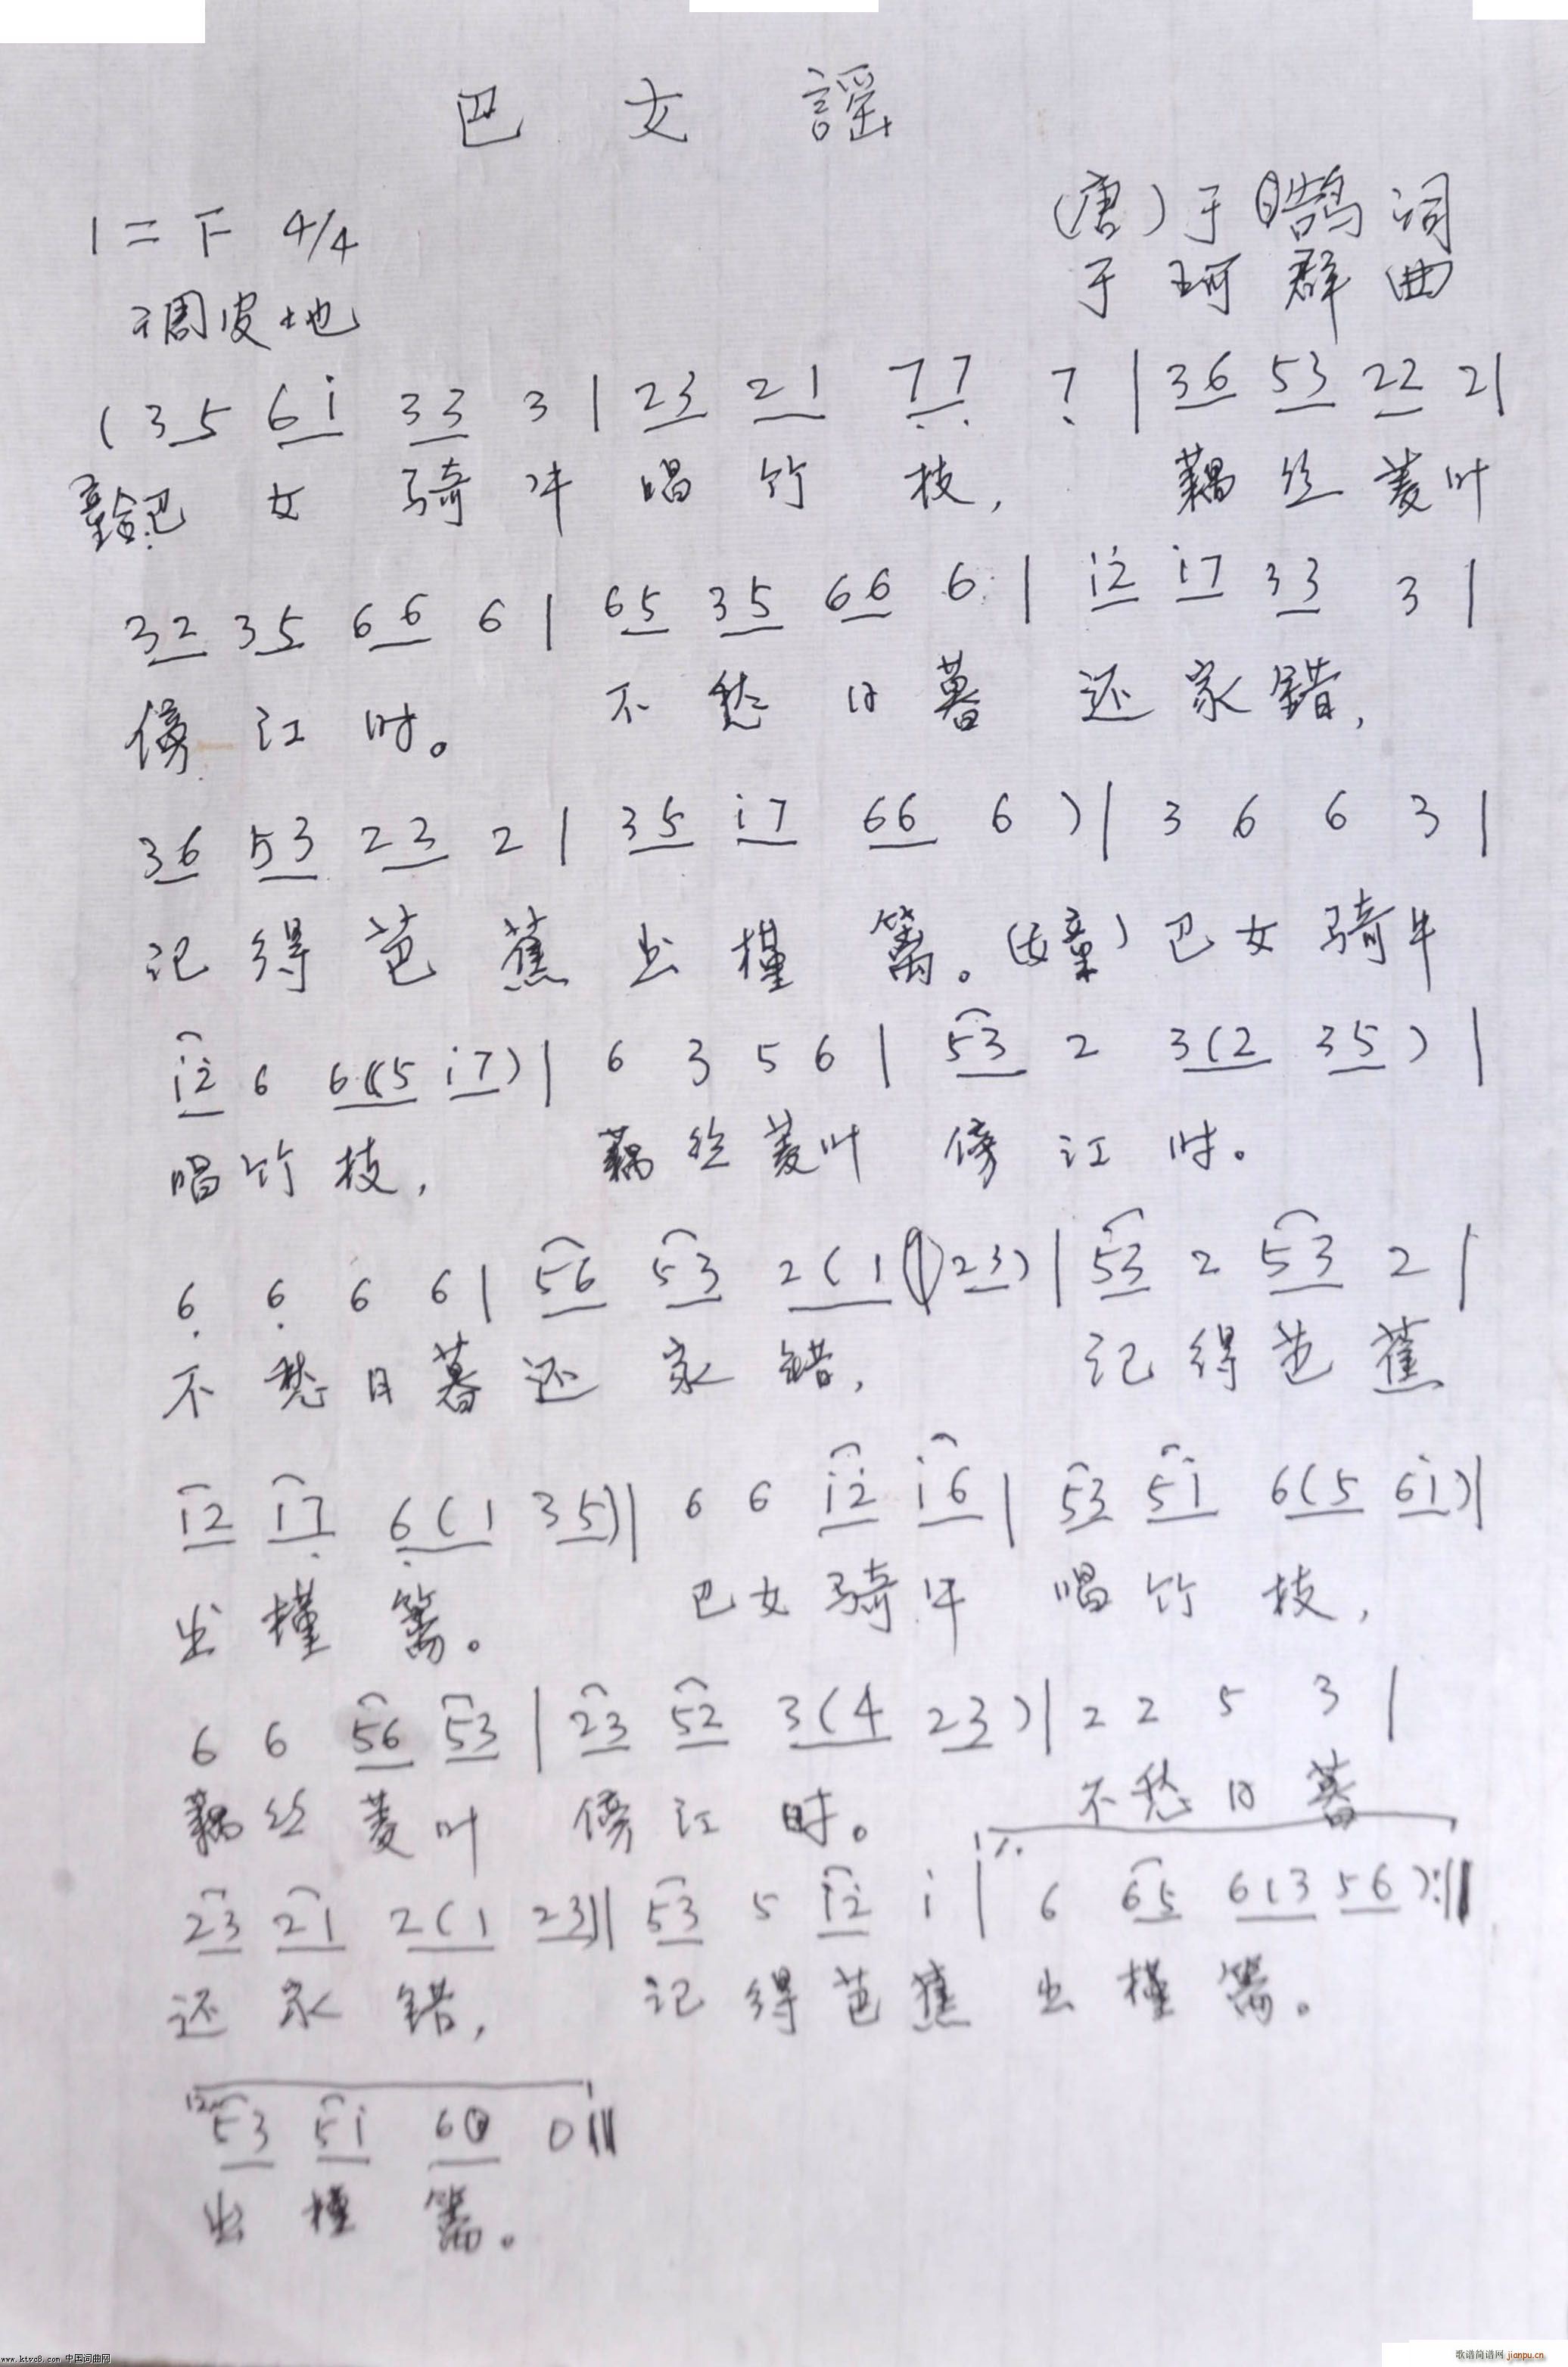 巴女謡
1=F 4/4
(唐)于鹄词
调皮地
于珂群曲
(35 6i 33 3 | 23 21 77 7 | 36 53 22 2|
童谣:巴女骑牛唱竹枝, 藕丝菱叶
32 35 66 6 | 65 35 66 6 | i2 i7 33 3 |
傍江时。 不愁日暮还家错,
36 53 23 2 | 35 i7 66 6 )| 3 6 6 3 |
记得芭蕉出槿篱。(女童)巴女骑牛
i2 6 6(5 i7)| 6 3 5 6 | 53 2 3(2 35) |
唱竹枝, 藕丝菱叶傍江时。
6 6 6 6 | 56 53 2(1 23)| 53 2 53 2 |
不愁日暮还家错, 记得芭蕉
12 17 6(1 35)| 6 6 i2 i6 | 53 5i 6(5 6i)|
出槿篱。 巴女骑牛唱竹枝,
6 6 56 53 | 23 52 3(4 23)| 2 2 5 3 |
藕丝菱叶傍江时。 不愁日暮
1.
23 21 2(1 23)| 53 5 i2 i | 6 65 6(3 56):||
还家错, 记得芭蕉出槿篱。
2.
53 5i 60 0||
出槿篱。
www.ktvc8.com 中国词曲网
歌谱简谱网 jianpu.cn